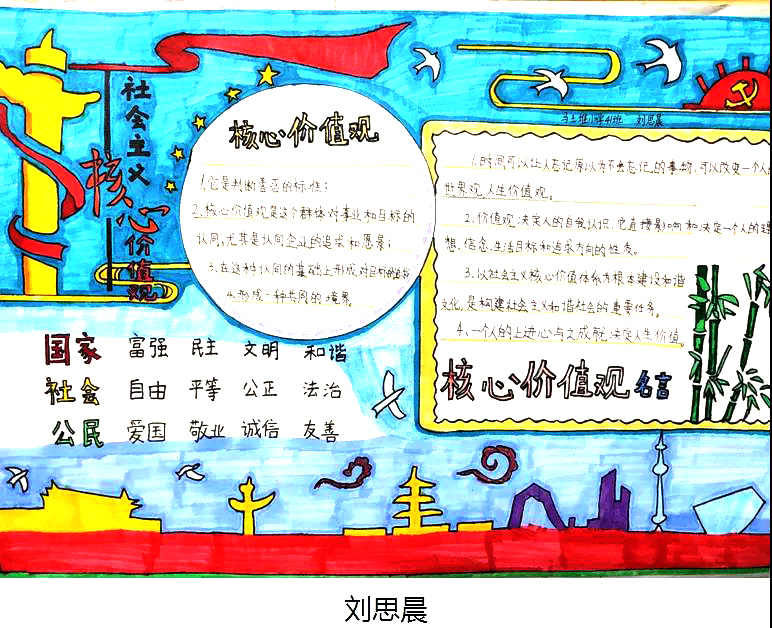 社会主义
核心
价值观
核心价值观
1.它是判断善恶的标准；
2.核心价值观是这个群体对事业和目标的
认同,尤其是认同企业的追求和愿景；
3.在这种认同的基础上形成对目标的追求
4.形成一种共同的境界。
国家 富强 民主 文明 和谐
社会 自由 平等 公正 法治
公民 爱国 敬业 诚信 友善
刘思晨
1.时间可以让人忘记原以为不会忘记的事物,可以改变一个人的
世界观,人生价值观。
2.价值观决定人的自我认识,它直接影响和决定一个人的理
想、信念、生活目标和追求方向的性质。
3.以社会主义核心价值体系为根本建设和谐
文化,是构建社会主义和谐社会的重要任务。
4.一个人的上进心与之成就,决定人生价值。
核心价值观名言
刘思晨